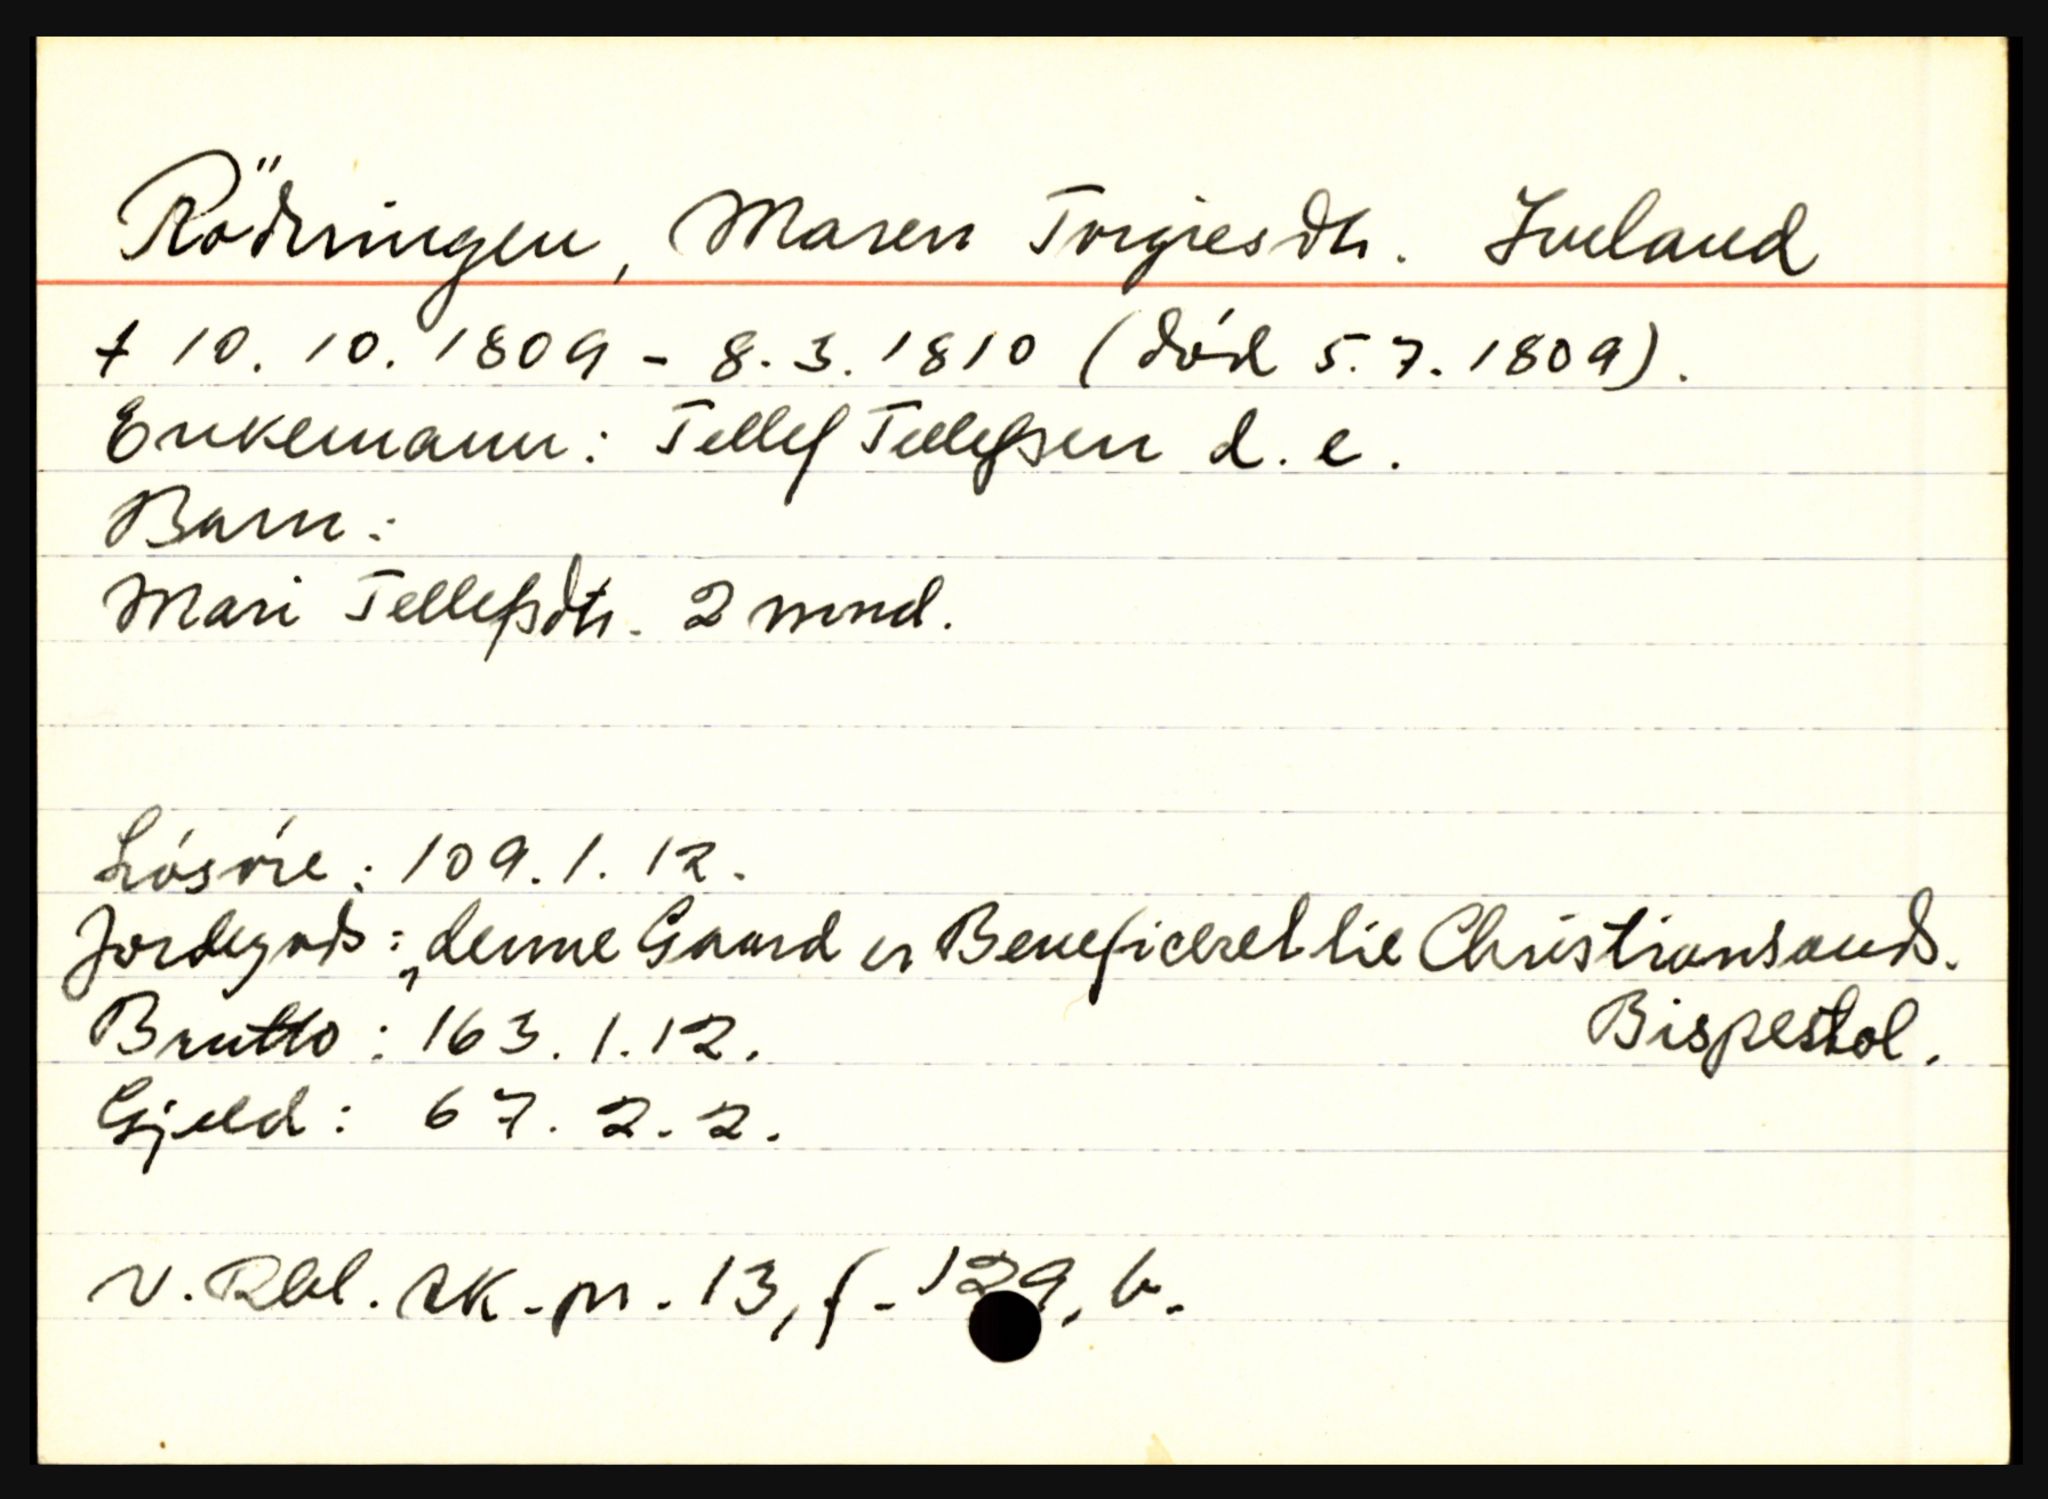 Rödningen, Maren Torgiesdtr. Iveland
† 10. 10. 1809 - 8. 3. 1810 (död 5. 7. 1809).
Enkemann: Tellef Tellefsen d. e.
Barn:
Mari Tellefsdtr. 2 mnd.
Lösöre: 109. 1. 12.
Jordegods: „denne Gaard er Beneficeret til Christiansands.
Bispestol.
Brutto: 163. 1. 12.
Gjeld: 67. 2. 2.
N. Rbl. sk. pr. 13, f. 129, b.